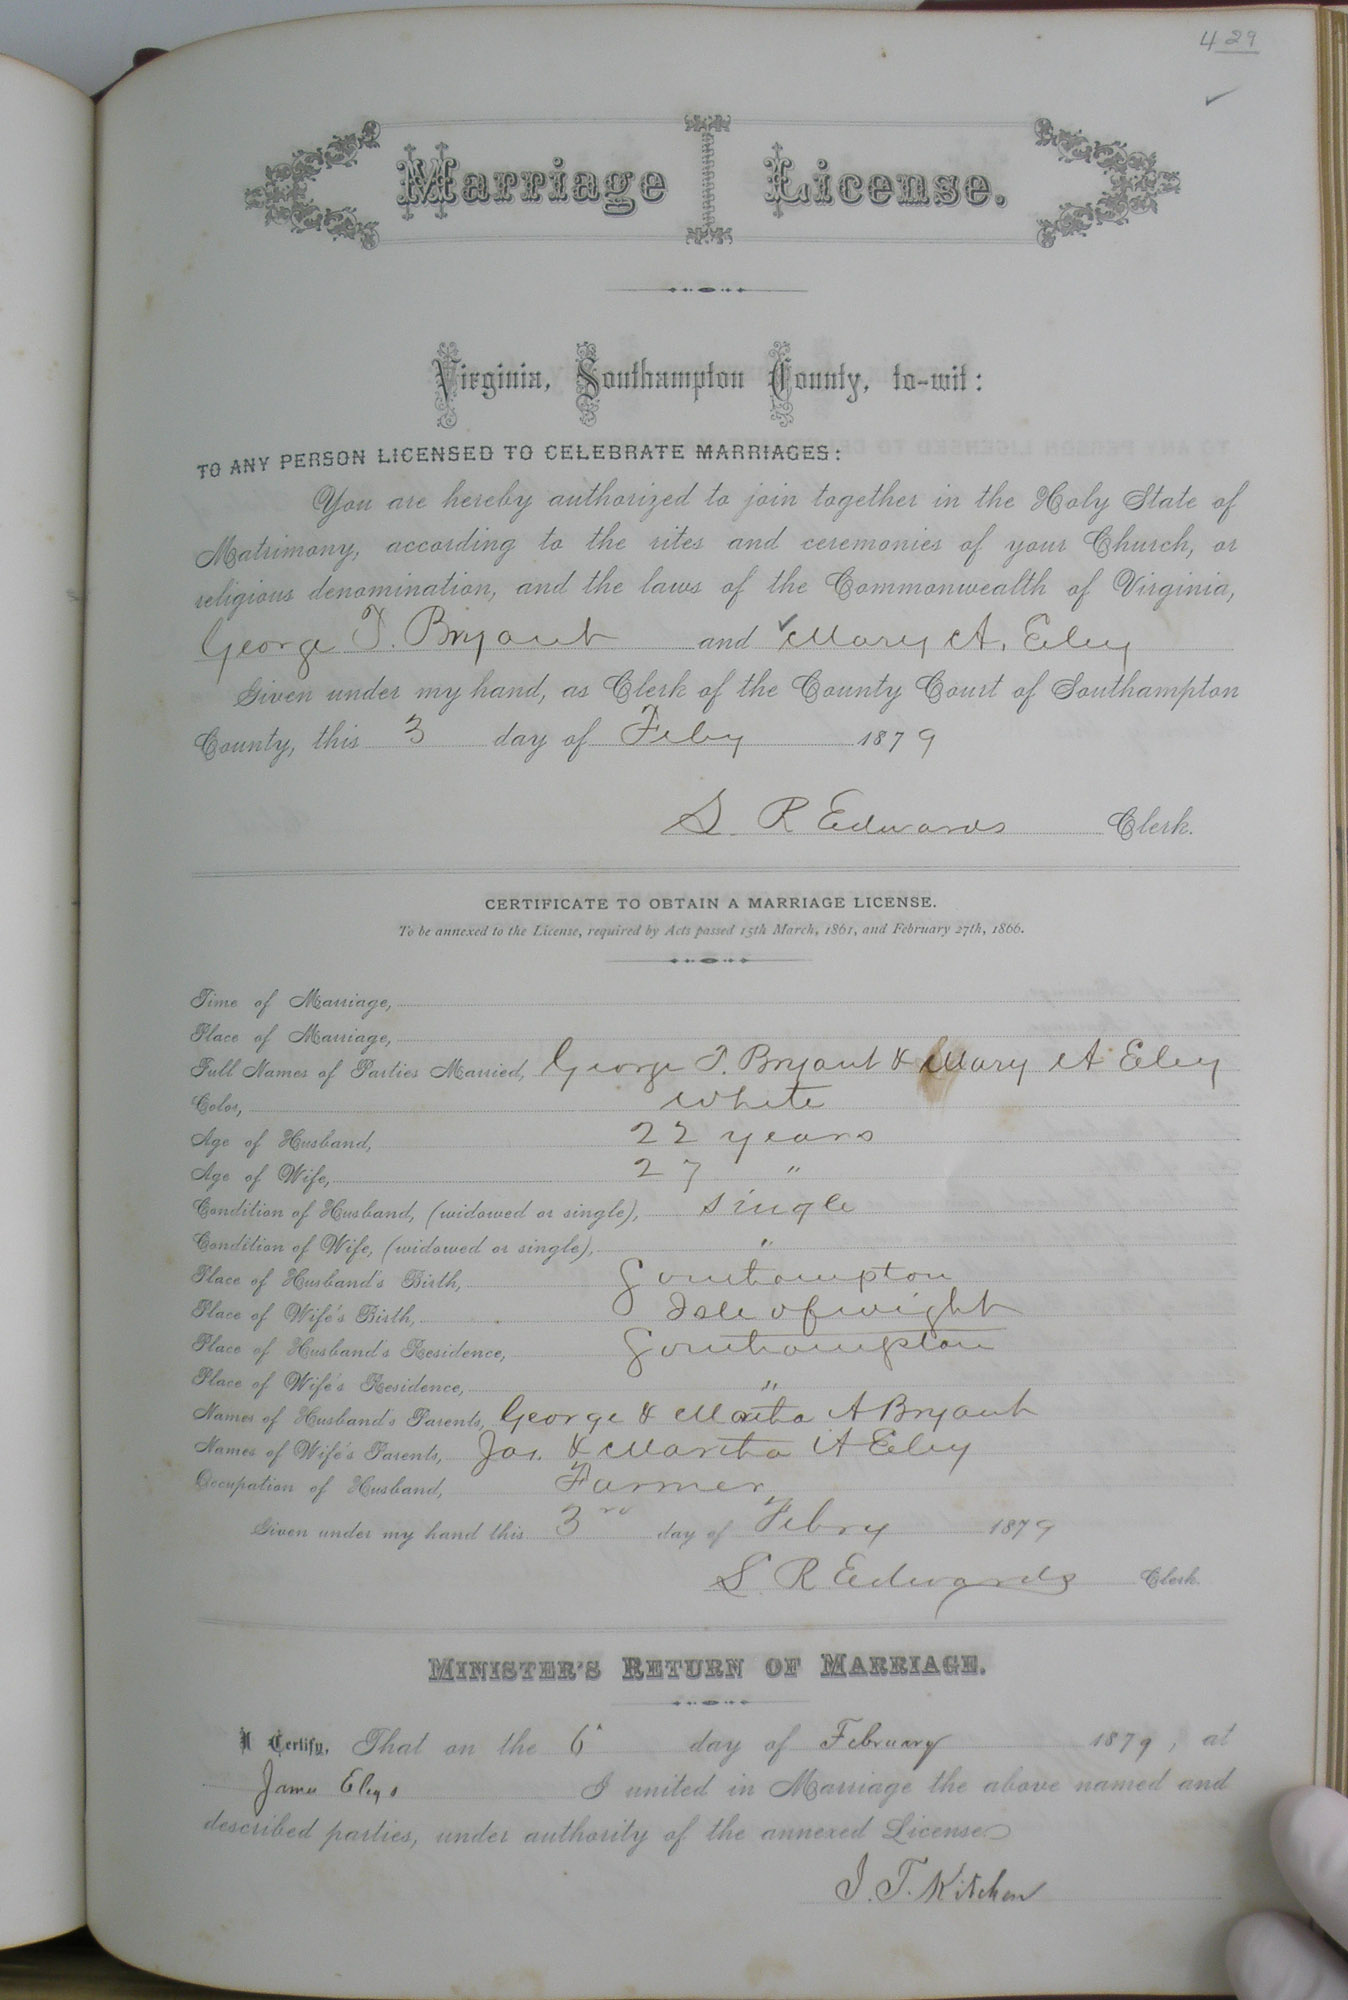 429
Marriage License.
Virginia, Southampton County, to-wit:
TO ANY PERSON LICENSED TO CELEBRATE MARRIAGES:
You are hereby authorized to join together in the Holy State of
Matrimony, according to the rites and ceremonies of your Church, or
religious denomination, and the laws of the Commonwealth of Virginia,
George T. Bryant and Mary A. Eley
Given under my hand, as Clerk of the County Court of Southampton
County, this 3 day of Feby 1879
S. R Edwards Clerk.
CERTIFICATE TO OBTAIN A MARRIAGE LICENSE.
To be annexed to the License, required by Acts passed 15th March, 1861, and February 27th, 1866.
Time of Marriage,
Place of Marriage,
Full Names of Parties Married, George T. Bryant & Mary A Eley
Color, White
Age of Husband, 22 years
Age of Wife, 27 "
Condition of Husband, (widowed or single), single
Condition of Wife, (widowed or single), "
Place of Husband's Birth, Southampton
Place of Wife's Birth, Isle of wight
Place of Husband's Residence, Southampton
Place of Wife's Residence, "
Names of Husband's Parents, George & Martha A Bryant
Names of Wife's Parents, Jas. & Martha A Eley
Occupation of Husband, Farmer
Given under my hand this 3rd day of Febry 1879
S. R Edwards Clerk.
MINISTER'S RETURN OF MARRIAGE.
I Certify, That on the 6 day of February 1879, at
James Eley's I united in Marriage the above named and
described parties, under authority of the annexed License
J. T. Kitchen